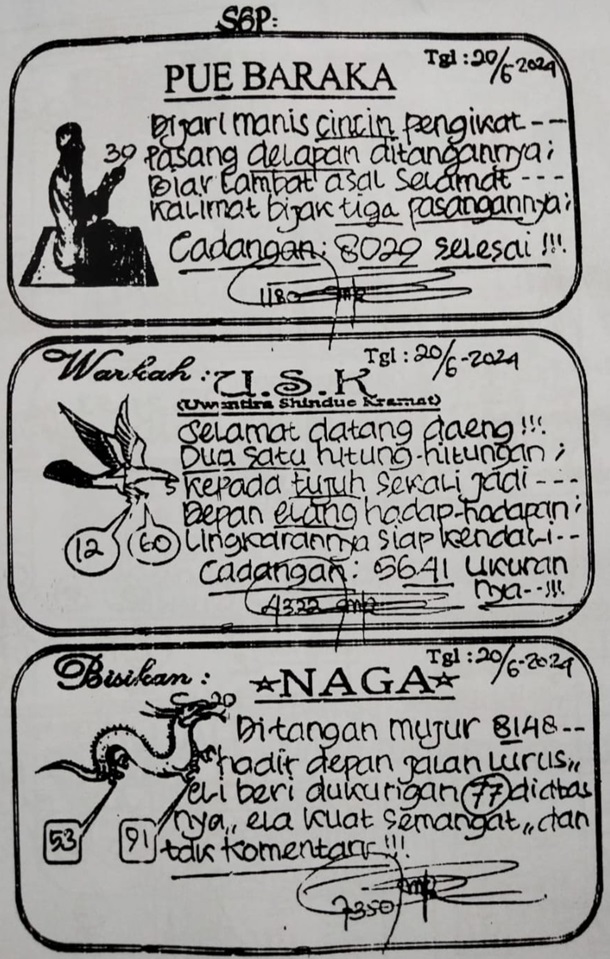 SGP:
Tgl : 20/6-2024
PUE BARAKA
Dijari manis cincin pengikat ---
39 Pasang delapan ditangannya;
Biar lambat asal selamat ---
Kalimat bijak tiga pasangannya;
Cadangan: 8029 selesai !!!
1180
Warkah : U.S.K
Tgl : 20/6-2024
(Uwentira Shinduo Kramat)
Selamat datang daeng !!!
Dua satu hitung-hitungan ;
Kepada tujuh sekali jadi ---
Depan elang hadap-hadapan ;
12 60 Lingkarannya siap kendali --
Cadangan : 5641 ukuran
nya--!!!
4322
Bisikan :
Tgl : 20/6-2024
☆NAGA☆
20
Ditangan mujur 8148--
hadir depan jalan lurus,,
eli beri dukungan 77 diatas
nya,, ela kuat semangat,, dan
53 91 tak komentar !!!
7350